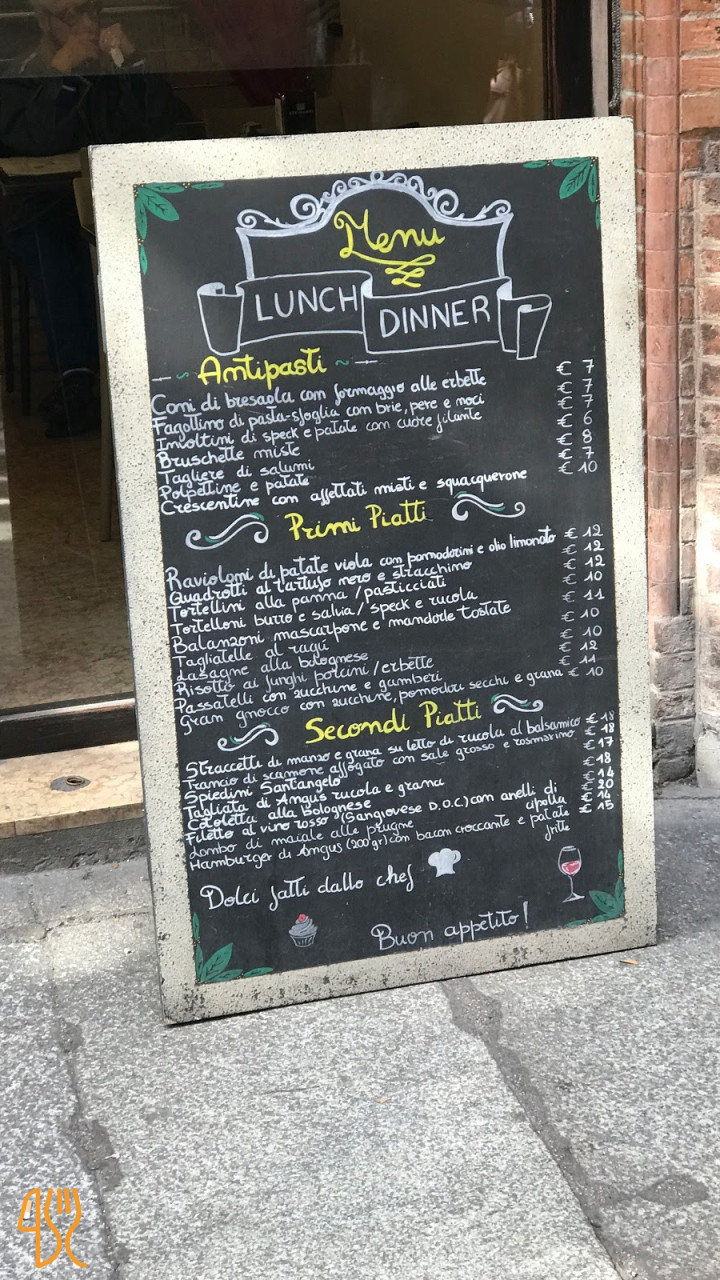 Menu
LUNCH DINNER
Antipasti
Coni di bresaola con formaggio alle erbette € 7
Fagottino di pasta-sfoglia con brie, pere e noci € 7
Involtini di speck e patate con cuore filante € 7
Bruschette miste € 6
Tagliere di salumi € 8
Polpettine e patate € 7
Crescentine con affettati misti e squacquerone € 10
Primi Piatti
Raviolomi di patate viola con pomodorini e olio limonato € 12
Quadrotti al tartufo nero e stracchino € 12
Tortellini alla panna / pasticciati € 12
Tortelloni burro e salvia / speck e rucola € 10
Balanzoni mascarpone e mandorle tostate € 11
Tagliatelle al ragù € 10
Lasagne alla bolognese € 10
Risotto ai funghi porcini / erbette € 12
Passatelli con zucchine e gamberi € 11
Gran gnocco con zucchine, pomodori secchi e grana € 10
Secondi Piatti
Straccetti di manzo e grana su letto di rucola al balsamico € 18
Trancio di scamone affogato con sale grosso e rosmarino € 18
Spiedini Santangelo € 17
Tagliata di Angus rucola e grana € 18
Cotoletta alla bolognese € 14
Filetto al vino rosso (Sangiovese D.O.C) con anelli di cipolla € 20
Lombo di maiale alle prugne € 14
Hamburger di Angus (200gr) con bacon croccante e patate fritte € 15
Dolci fatti dallo chef
Buon appetito!